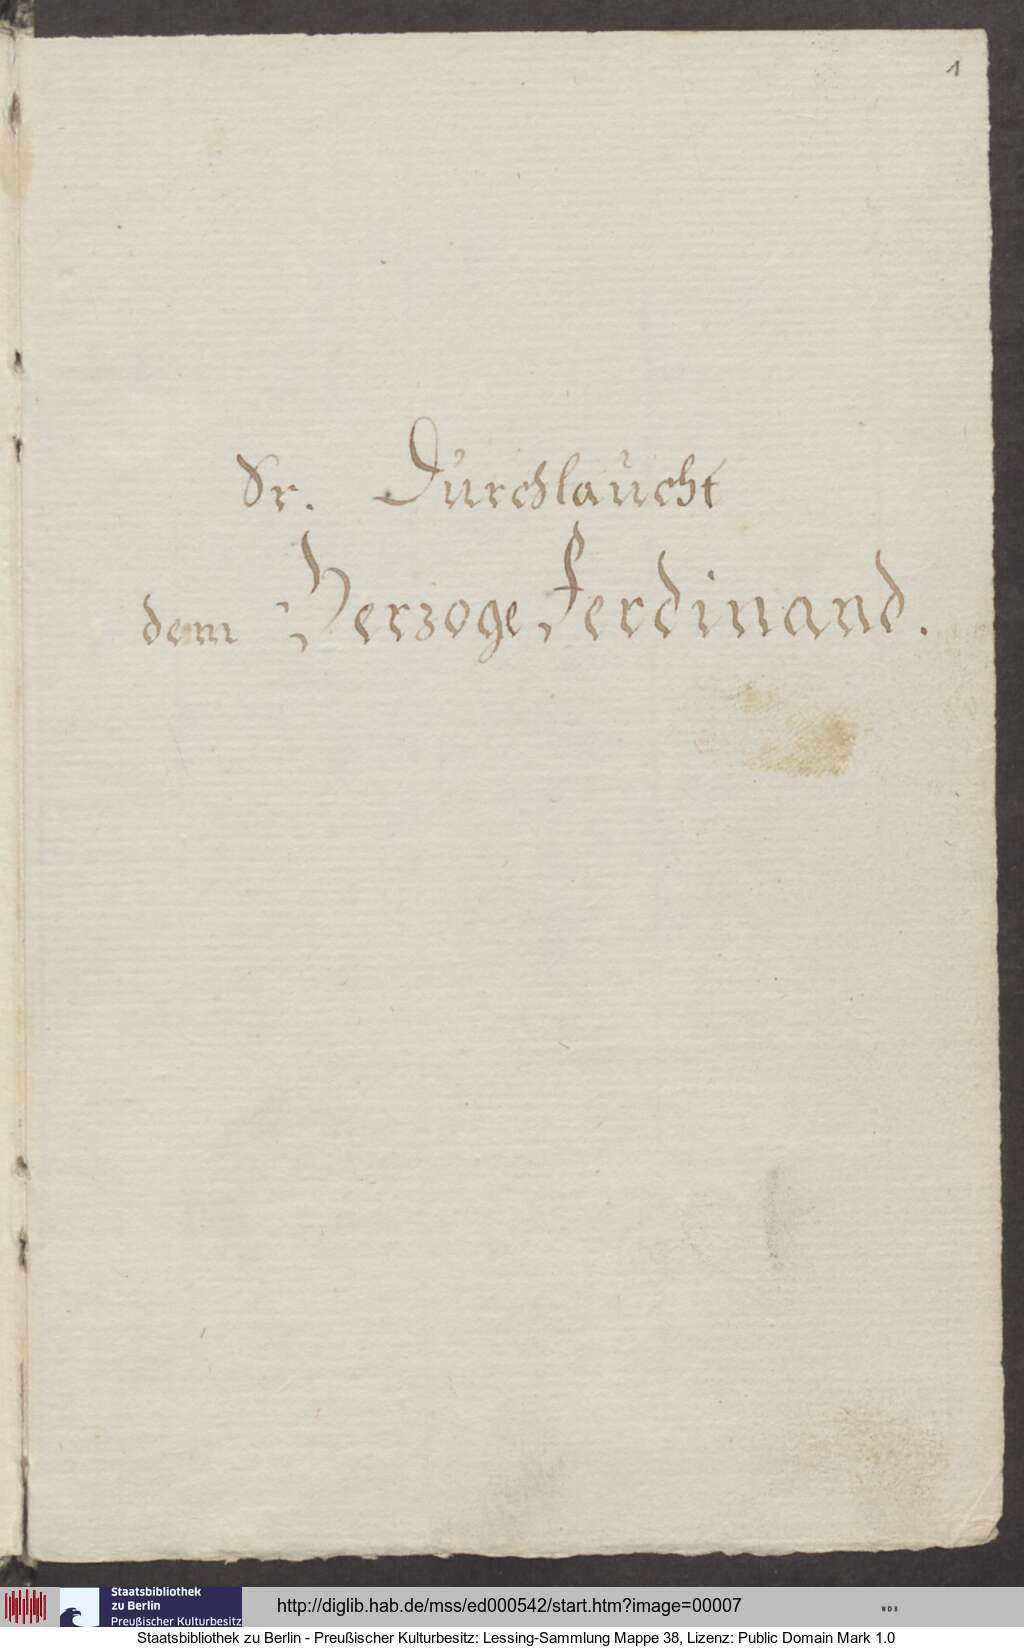 1
Sr. Durchlaucht
dem Herzoge Ferdinand.
Staatsbibliothek
zu Berlin
Preußischer Kulturbesitz
http://diglib.hab.de/mss/ed000542/start.htm?image=00007
WDB
Staatsbibliothek zu Berlin - Preußischer Kulturbesitz: Lessing-Sammlung Mappe 38, Lizenz: Public Domain Mark 1.0